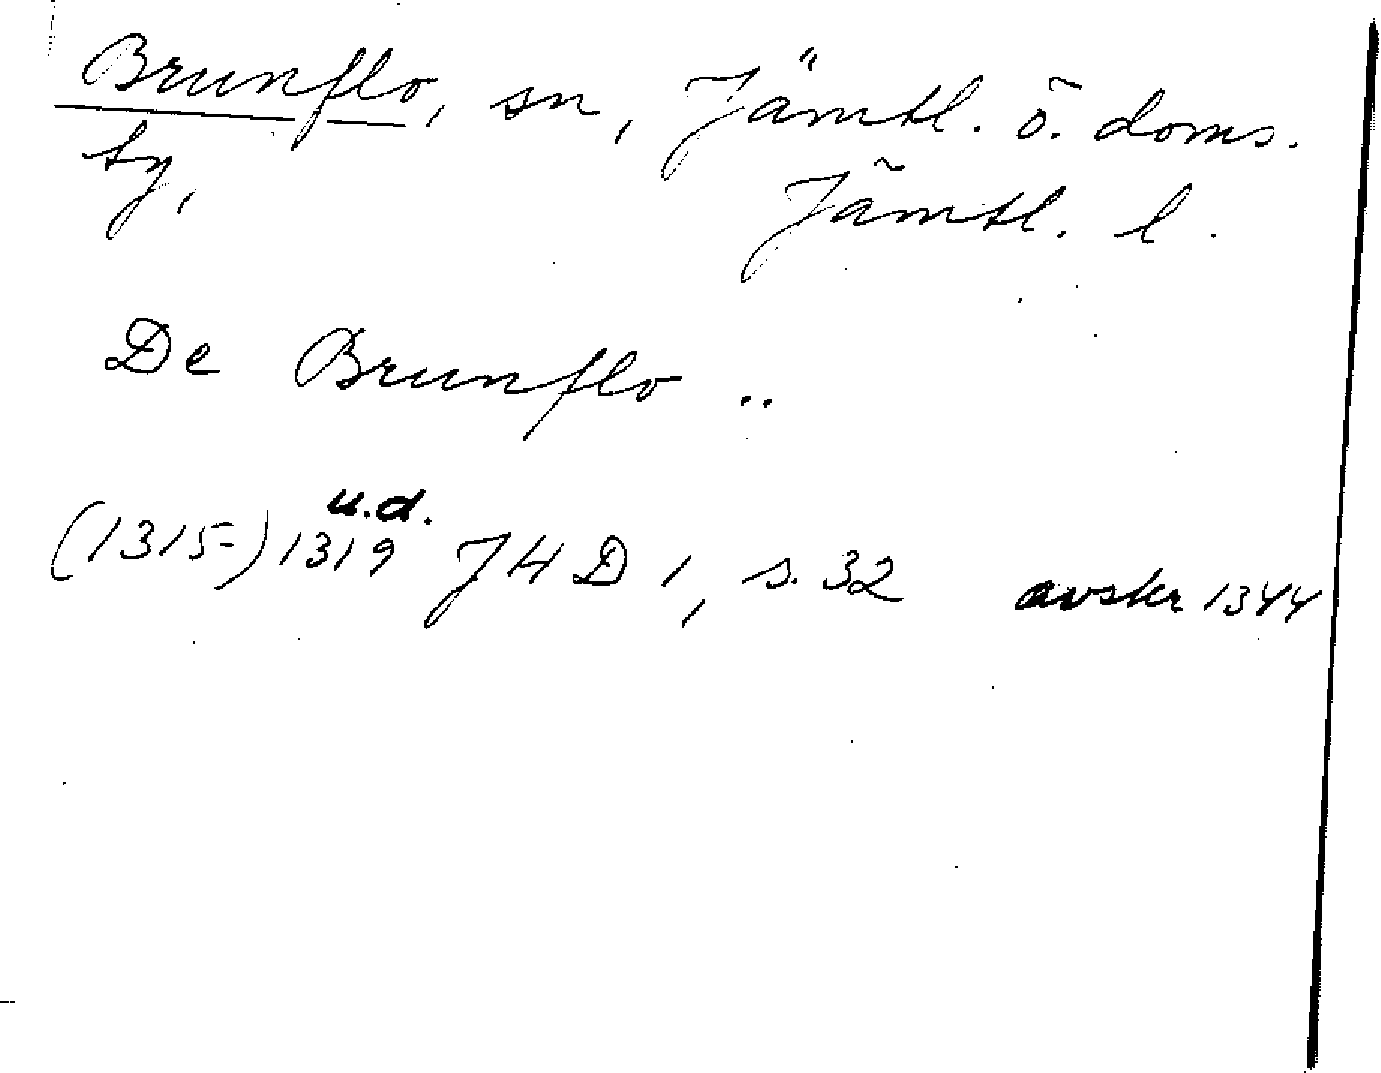 Brunflo, sn, Jämtl. ö. doms.
ty, Jämtl. l.
De Brunflo ..
u.d.
(1315-) 1319 JHD 1, s. 32 avskr 1344